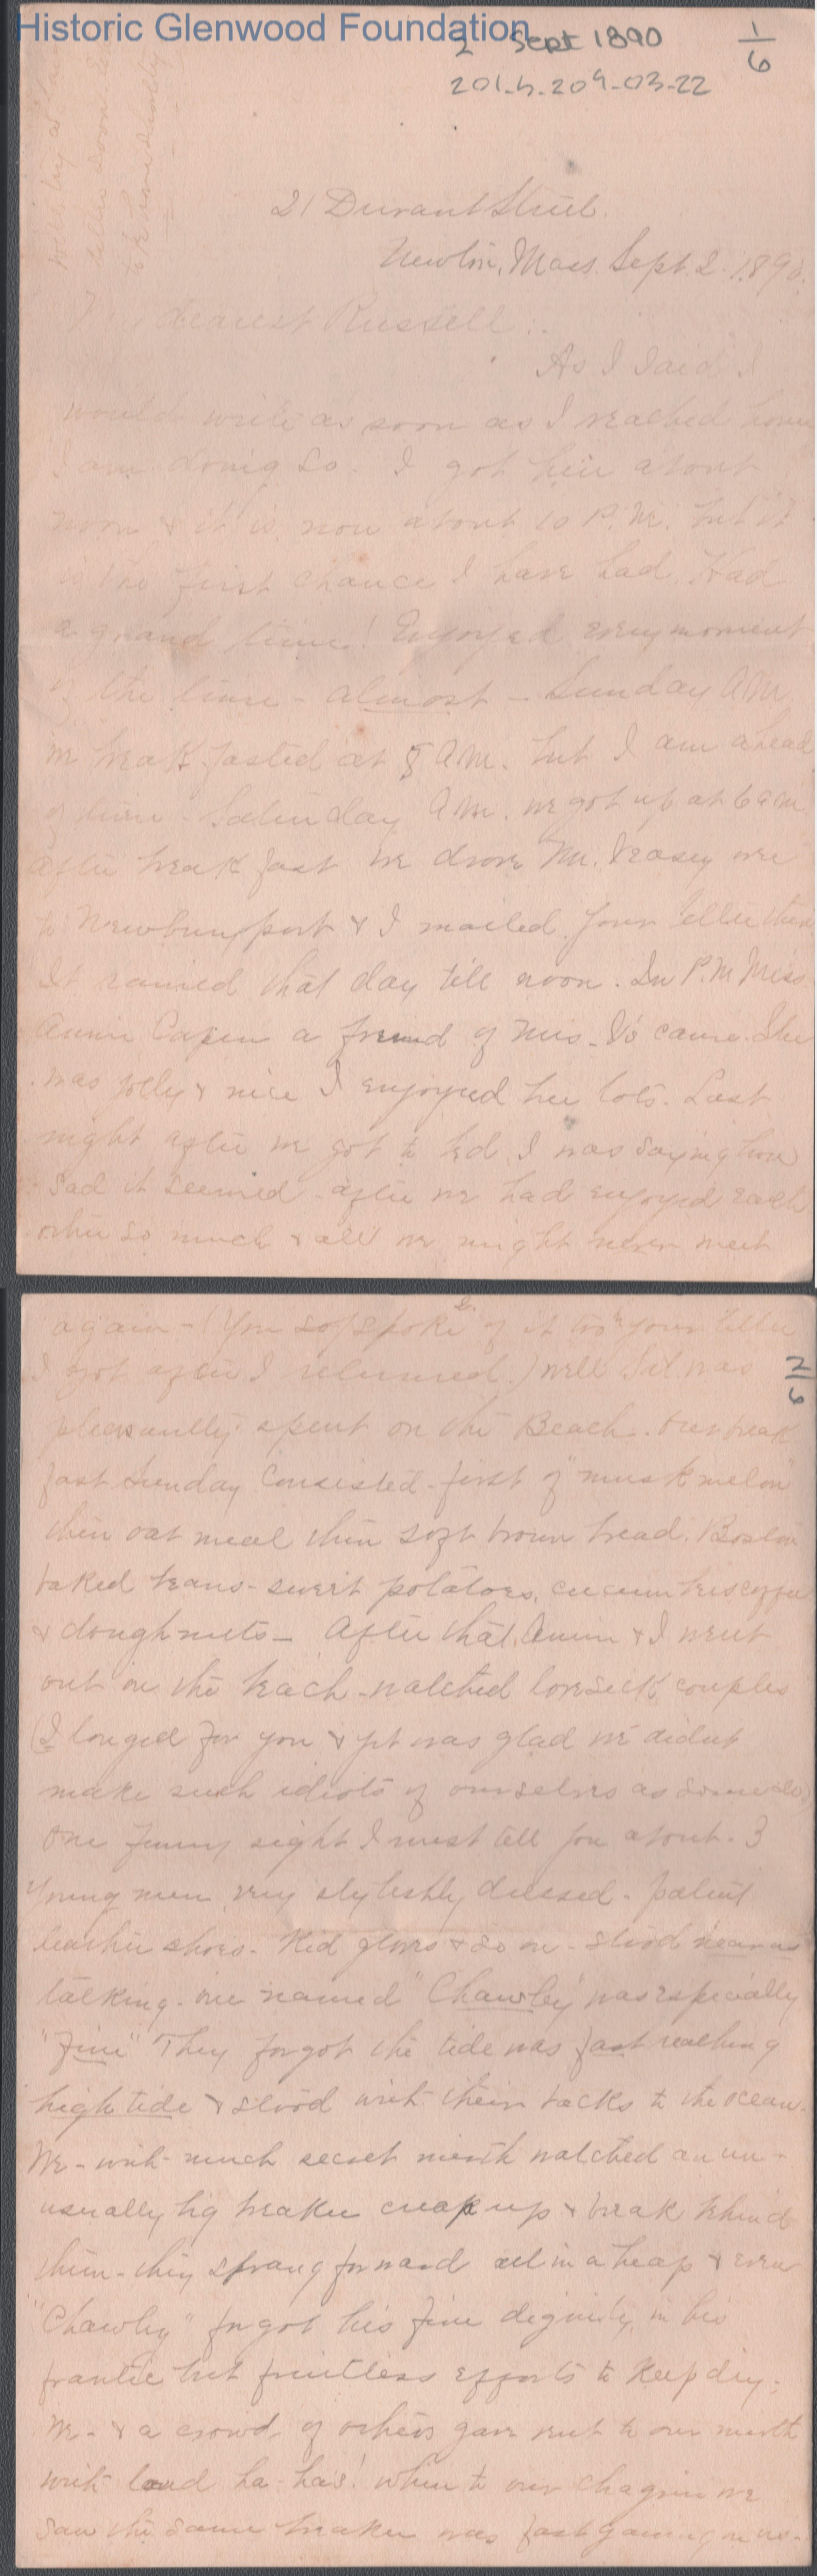 Historic Glenwood Foundation
2 Sept 1890
1/6
201.5.209-03-22
21 Durant Street.
Newton, Mass. Sept. 2. 1890.
My dearest Russell:
As I said I
would write as soon as I reached home
I am doing so. I got here about
noon & it is now about 10 P.M. but it
is the first chance I have had. Had
a grand time! Enjoyed every moment
of the time - almost - Sunday A.M.
we breakfasted at 8 A.M. but I am ahead
of time. Saturday A.M. we got up at 6 a.m.
after breakfast we drove Mr. Veasey over
to Newburyport & I mailed your letter there
It rained that day till noon. In P.M. Miss
Annie Capen a friend of Mrs. V's came. She
was jolly & nice I enjoyed her lots. Last
night after we got to bed, I was saying how
sad it seemed after we had enjoyed each
other so much & all we might never meet
again - (You spoke of it too in your letter
I got after I returned.) well Sat. was
2/6
pleasantly spent on the Beach. Our break
fast Sunday consisted - first of "musk melon"
then oat meal then soft brown bread. Boston
baked beans - sweet potatoes, cucumbers coffee
& doughnuts - After that, Annie & I went
out on the beach - watched lovesick couples
(I longed for you & yet was glad we didnt
make such idiots of ourselves as some do)
One funny sight I must tell you about. 3
young men, very stylishly dressed - patent
leather shoes. Kid gloves & so on - stood near us
talking. one named "Chawley" was especially
"fine" They forgot the tide was fast reaching
high tide & stood with their backs to the ocean.
We - with much secret mirth watched an un-
usually big breaker creep up & break behind
them - they sprang forward all in a heap & even
"Chawley" forgot his fine dignity in his
frantic but fruitless efforts to keep dry.
We - & a crowd of others gave vent to our mirth
with loud ha-has! when to our chagrin we
saw the same breaker was fast gaining on us -